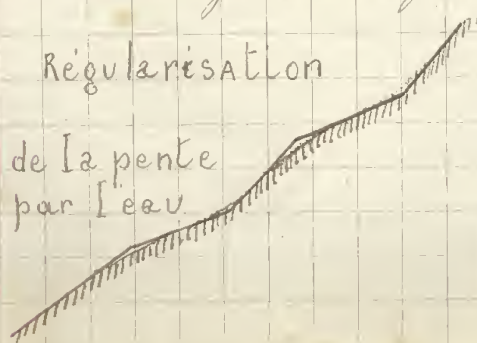 Régularisation
de la pente
par l'eau